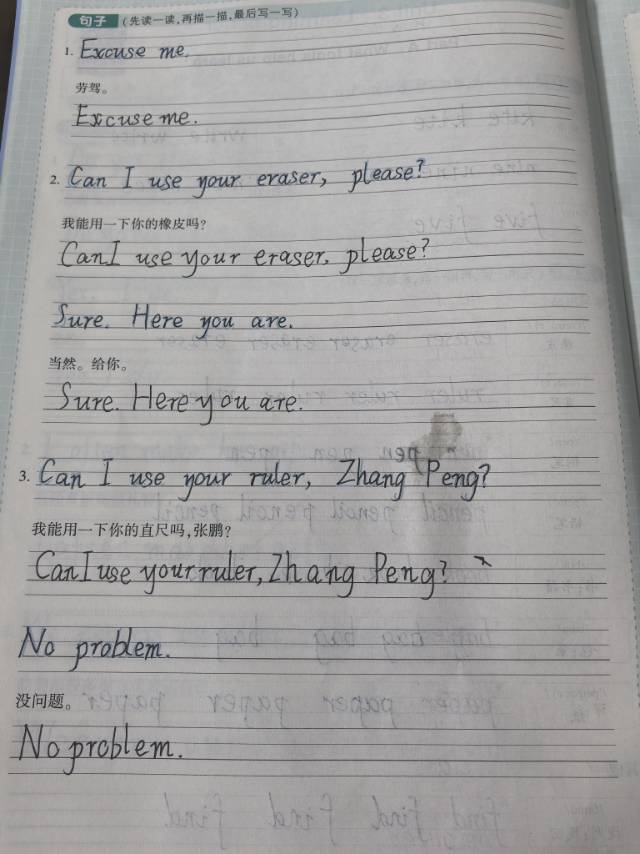 句子 (先读一读,再描一描,最后写一写)
1. Excuse me.
劳驾。
Excuse me.
2. Can I use your eraser, please?
我能用一下你的橡皮吗?
Can I use your eraser, please?
Sure. Here you are.
当然。给你。
Sure. Here you are.
3. Can I use your ruler, Zhang Peng?
我能用一下你的直尺吗,张鹏?
Can I use your ruler, Zhang Peng?
No problem.
没问题。
No problem.